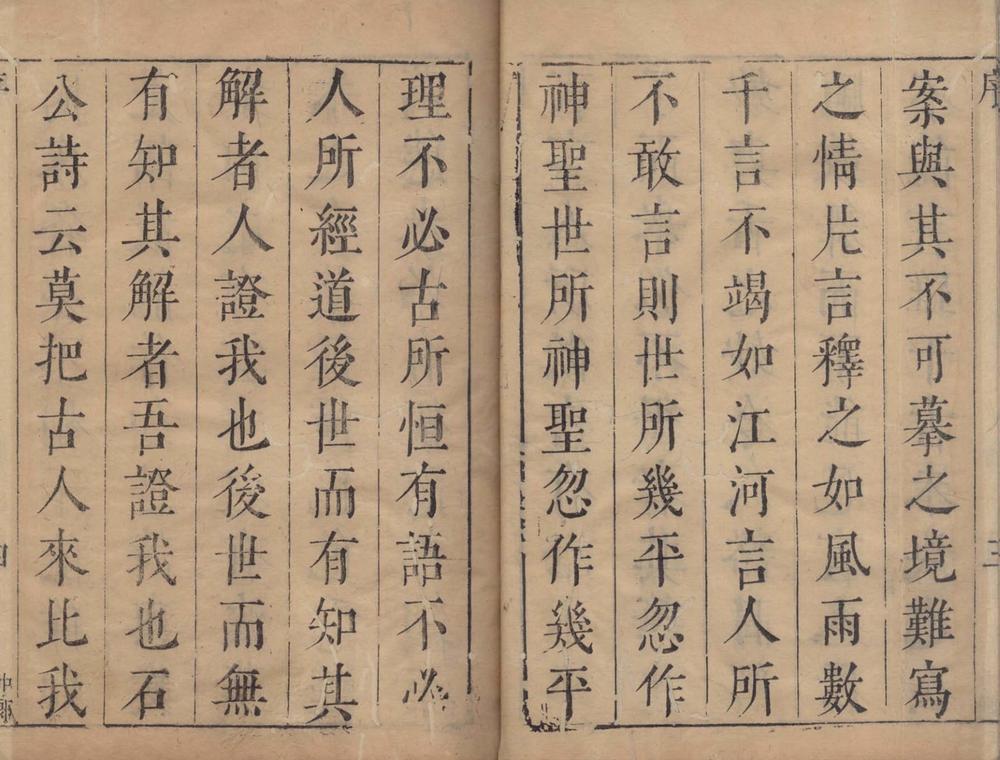 案與其不可摹之境難寫
之情片言釋之如風雨數
千言不竭如江河言人所
不敢言則世所幾平忽作
神聖世所神聖忽作幾平
理不必古所恒有語不必
人所經道後世而有知其
解者人證我也後世而無
有知其解者吾證我也石
公詩云莫把古人來比我